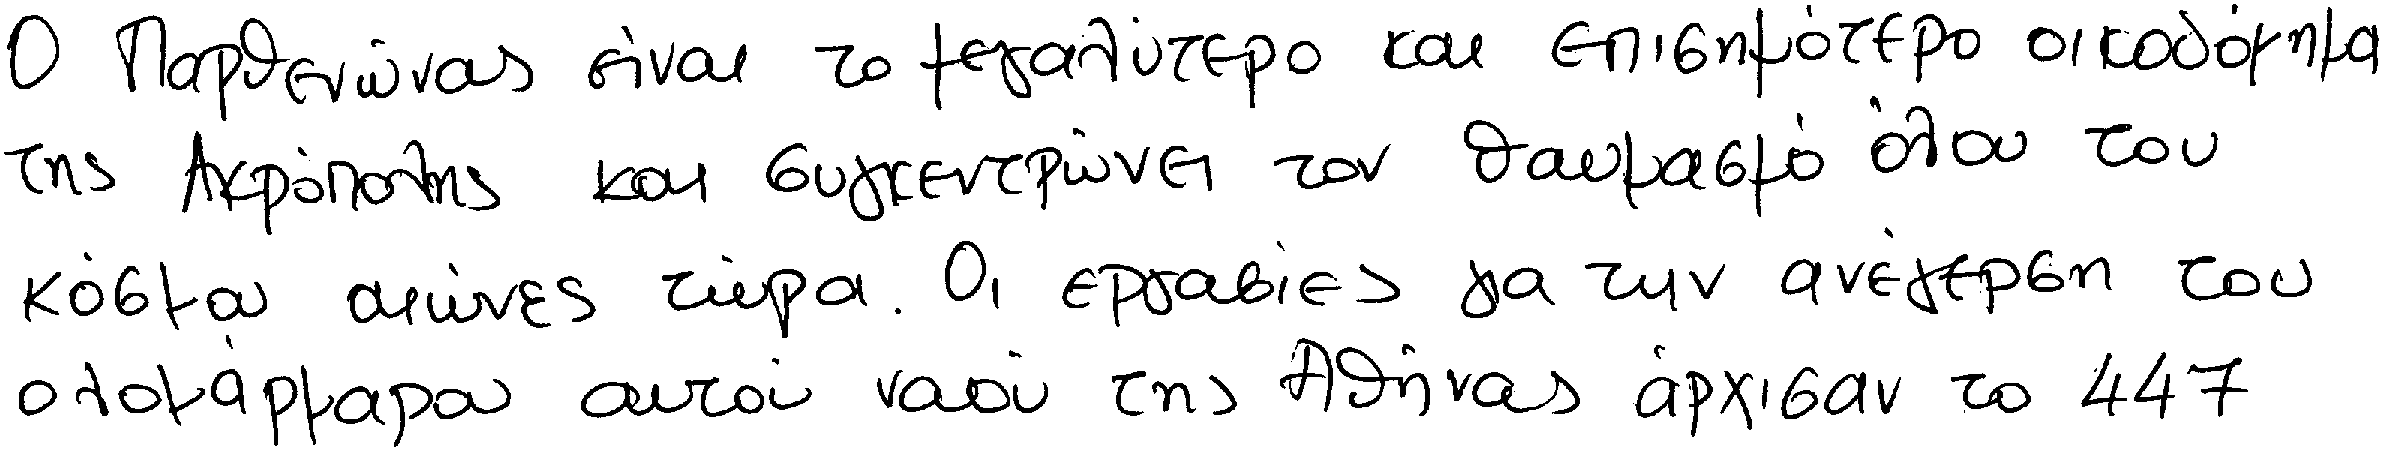 Ο Παρθενώνας είναι το μεγαλύτερο και επισημότερο οικοδόμημα
της Ακρόπολης και συγκεντρώνει τον θαυμασμό όλου του
κόσμου αιώνες τώρα. Οι εργασίες για την ανέγερση του
ολομάρμαρου αυτού ναού της Αθήνας άρχισαν το 447